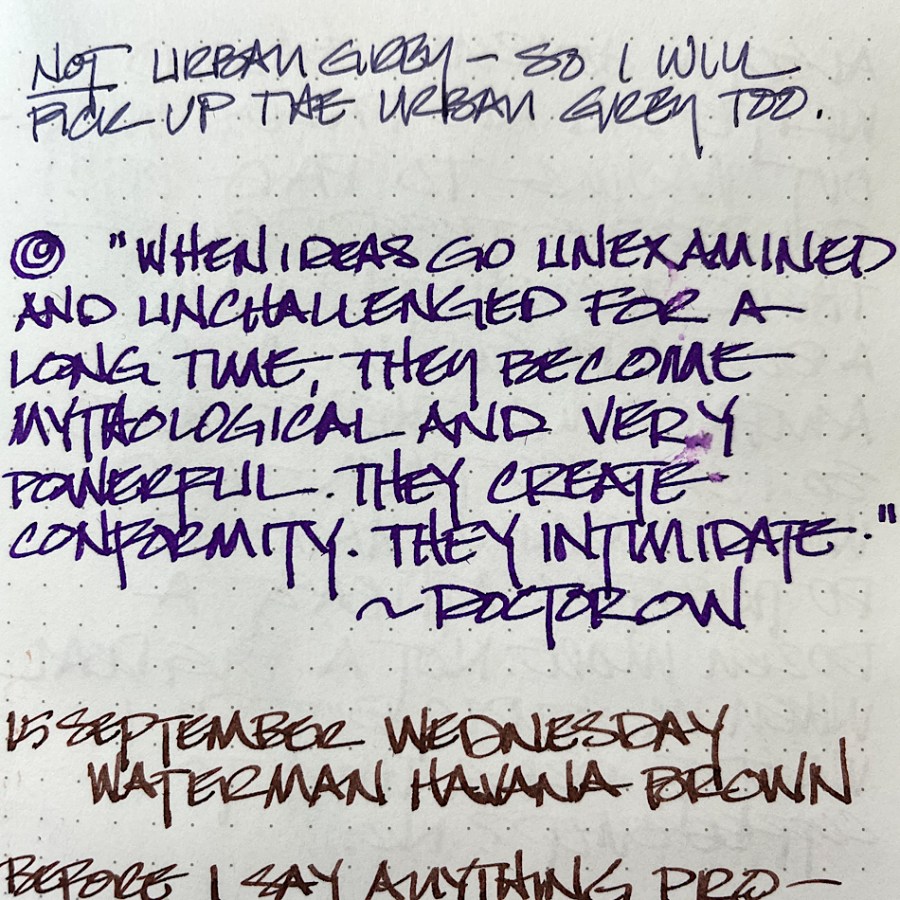 NOT URBAN GREY – SO I WILL
PICK UP THE URBAN GREY TOO.
"WHEN IDEAS GO UNEXAMINED
AND UNCHALLENGED FOR A
LONG TIME, THEY BECOME
MYTHOLOGICAL AND VERY
POWERFUL. THEY CREATE
CONFORMITY. THEY INTIMIDATE."
~DOCTOROW
15 SEPTEMBER WEDNESDAY
WATERMAN HAVANA BROWN
BEFORE I SAY ANYTHING PRO–